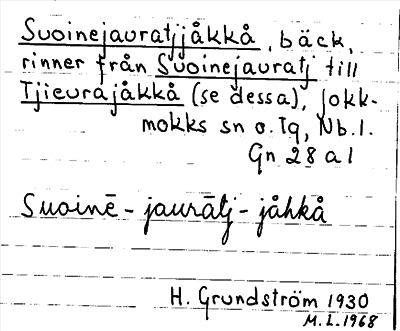 Suoinejauratjjåkkå, bäck,
rinner från Suoinejauratj till
Tjieuråjåkkå (se dessa), Jokk-
mokks sn o. Tg, Nb. l.
Gn 28 a 1
Suoinē-jaurātj-jåhkå
H. Grundström 1930
M.L. 1968